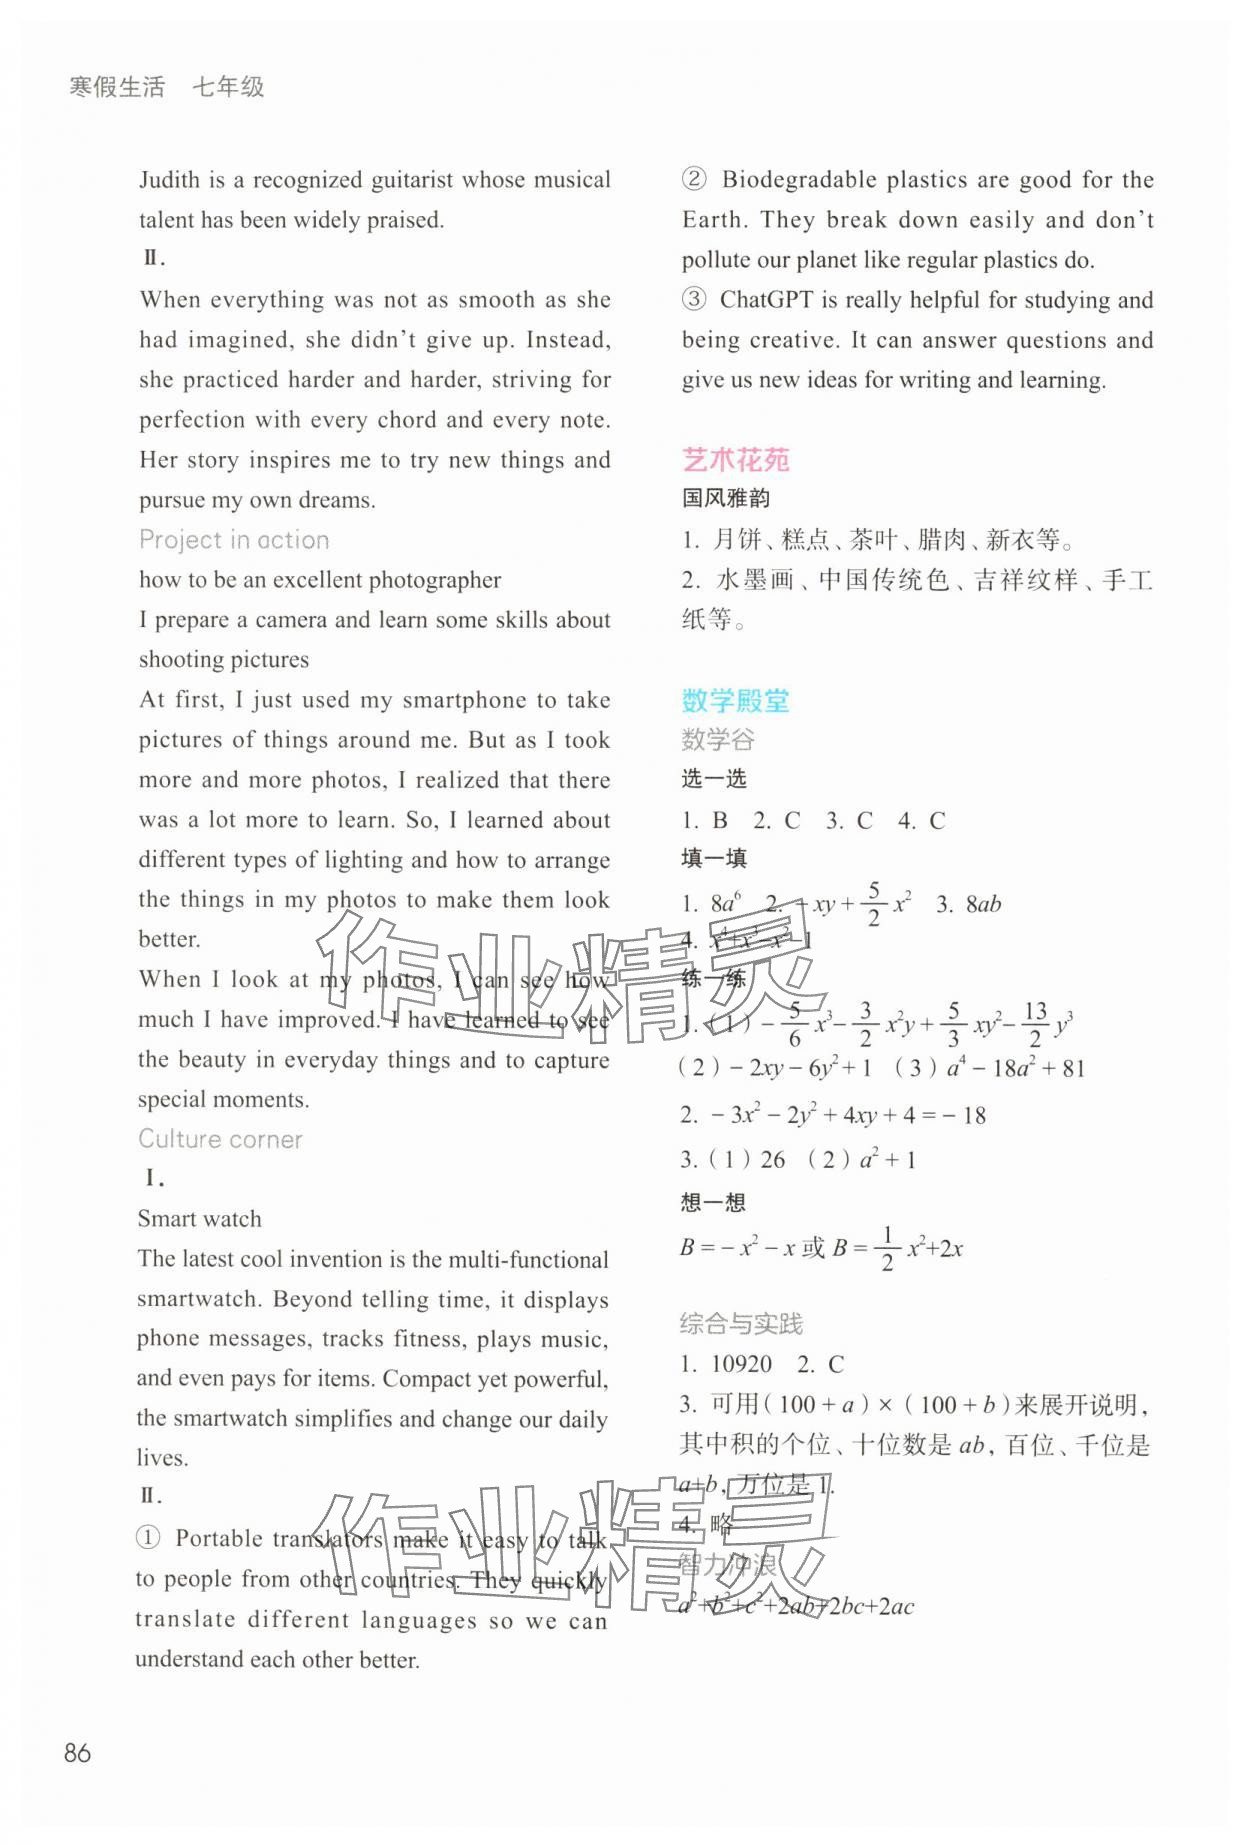 寒假生活 七年级
Judith is a recognized guitarist whose musical
talent has been widely praised.
Ⅱ.
When everything was not as smooth as she
had imagined, she didn't give up. Instead,
she practiced harder and harder, striving for
perfection with every chord and every note.
Her story inspires me to try new things and
pursue my own dreams.
Project in action
how to be an excellent photographer
I prepare a camera and learn some skills about
shooting pictures
At first, I just used my smartphone to take
pictures of things around me. But as I took
more and more photos, I realized that there
was a lot more to learn. So, I learned about
different types of lighting and how to arrange
the things in my photos to make them look
better.
When I look at my photos, I can see how
much I have improved. I have learned to see
the beauty in everyday things and to capture
special moments.
Culture corner
Ⅰ.
Smart watch
The latest cool invention is the multi-functional
smartwatch. Beyond telling time, it displays
phone messages, tracks fitness, plays music,
and even pays for items. Compact yet powerful,
the smartwatch simplifies and change our daily
lives.
Ⅱ.
① Portable translators make it easy to talk
to people from other countries. They quickly
translate different languages so we can
understand each other better.
② Biodegradable plastics are good for the
Earth. They break down easily and don't
pollute our planet like regular plastics do.
③ ChatGPT is really helpful for studying and
being creative. It can answer questions and
give us new ideas for writing and learning.
艺术花苑
国风雅韵
1. 月饼、糕点、茶叶、腊肉、新衣等。
2. 水墨画、中国传统色、吉祥纹样、手工
纸等。
数学殿堂
数学谷
选一选
1. B 2. C 3. C 4. C
填一填
1. 8a⁶ 2. -xy+5/2x² 3. 8ab
4. x⁴+x³-x²-1
练一练
1.(1)-5/6x³-3/2x²y+5/3xy²-13/2y³
(2)-2xy-6y²+1 (3)a⁴-18a²+81
2. -3x²-2y²+4xy+4=-18
3.(1)26 (2)a²+1
想一想
B=-x²-x或B=1/2x²+2x
综合与实践
1. 10920 2. C
3. 可用(100+a)×(100+b)来展开说明,
其中积的个位、十位数是ab,百位、千位是
a+b,万位是1.
4. 略
智力冲浪
a²+b²+c²+2ab+2bc+2ac
86
作业精灵
作业精灵